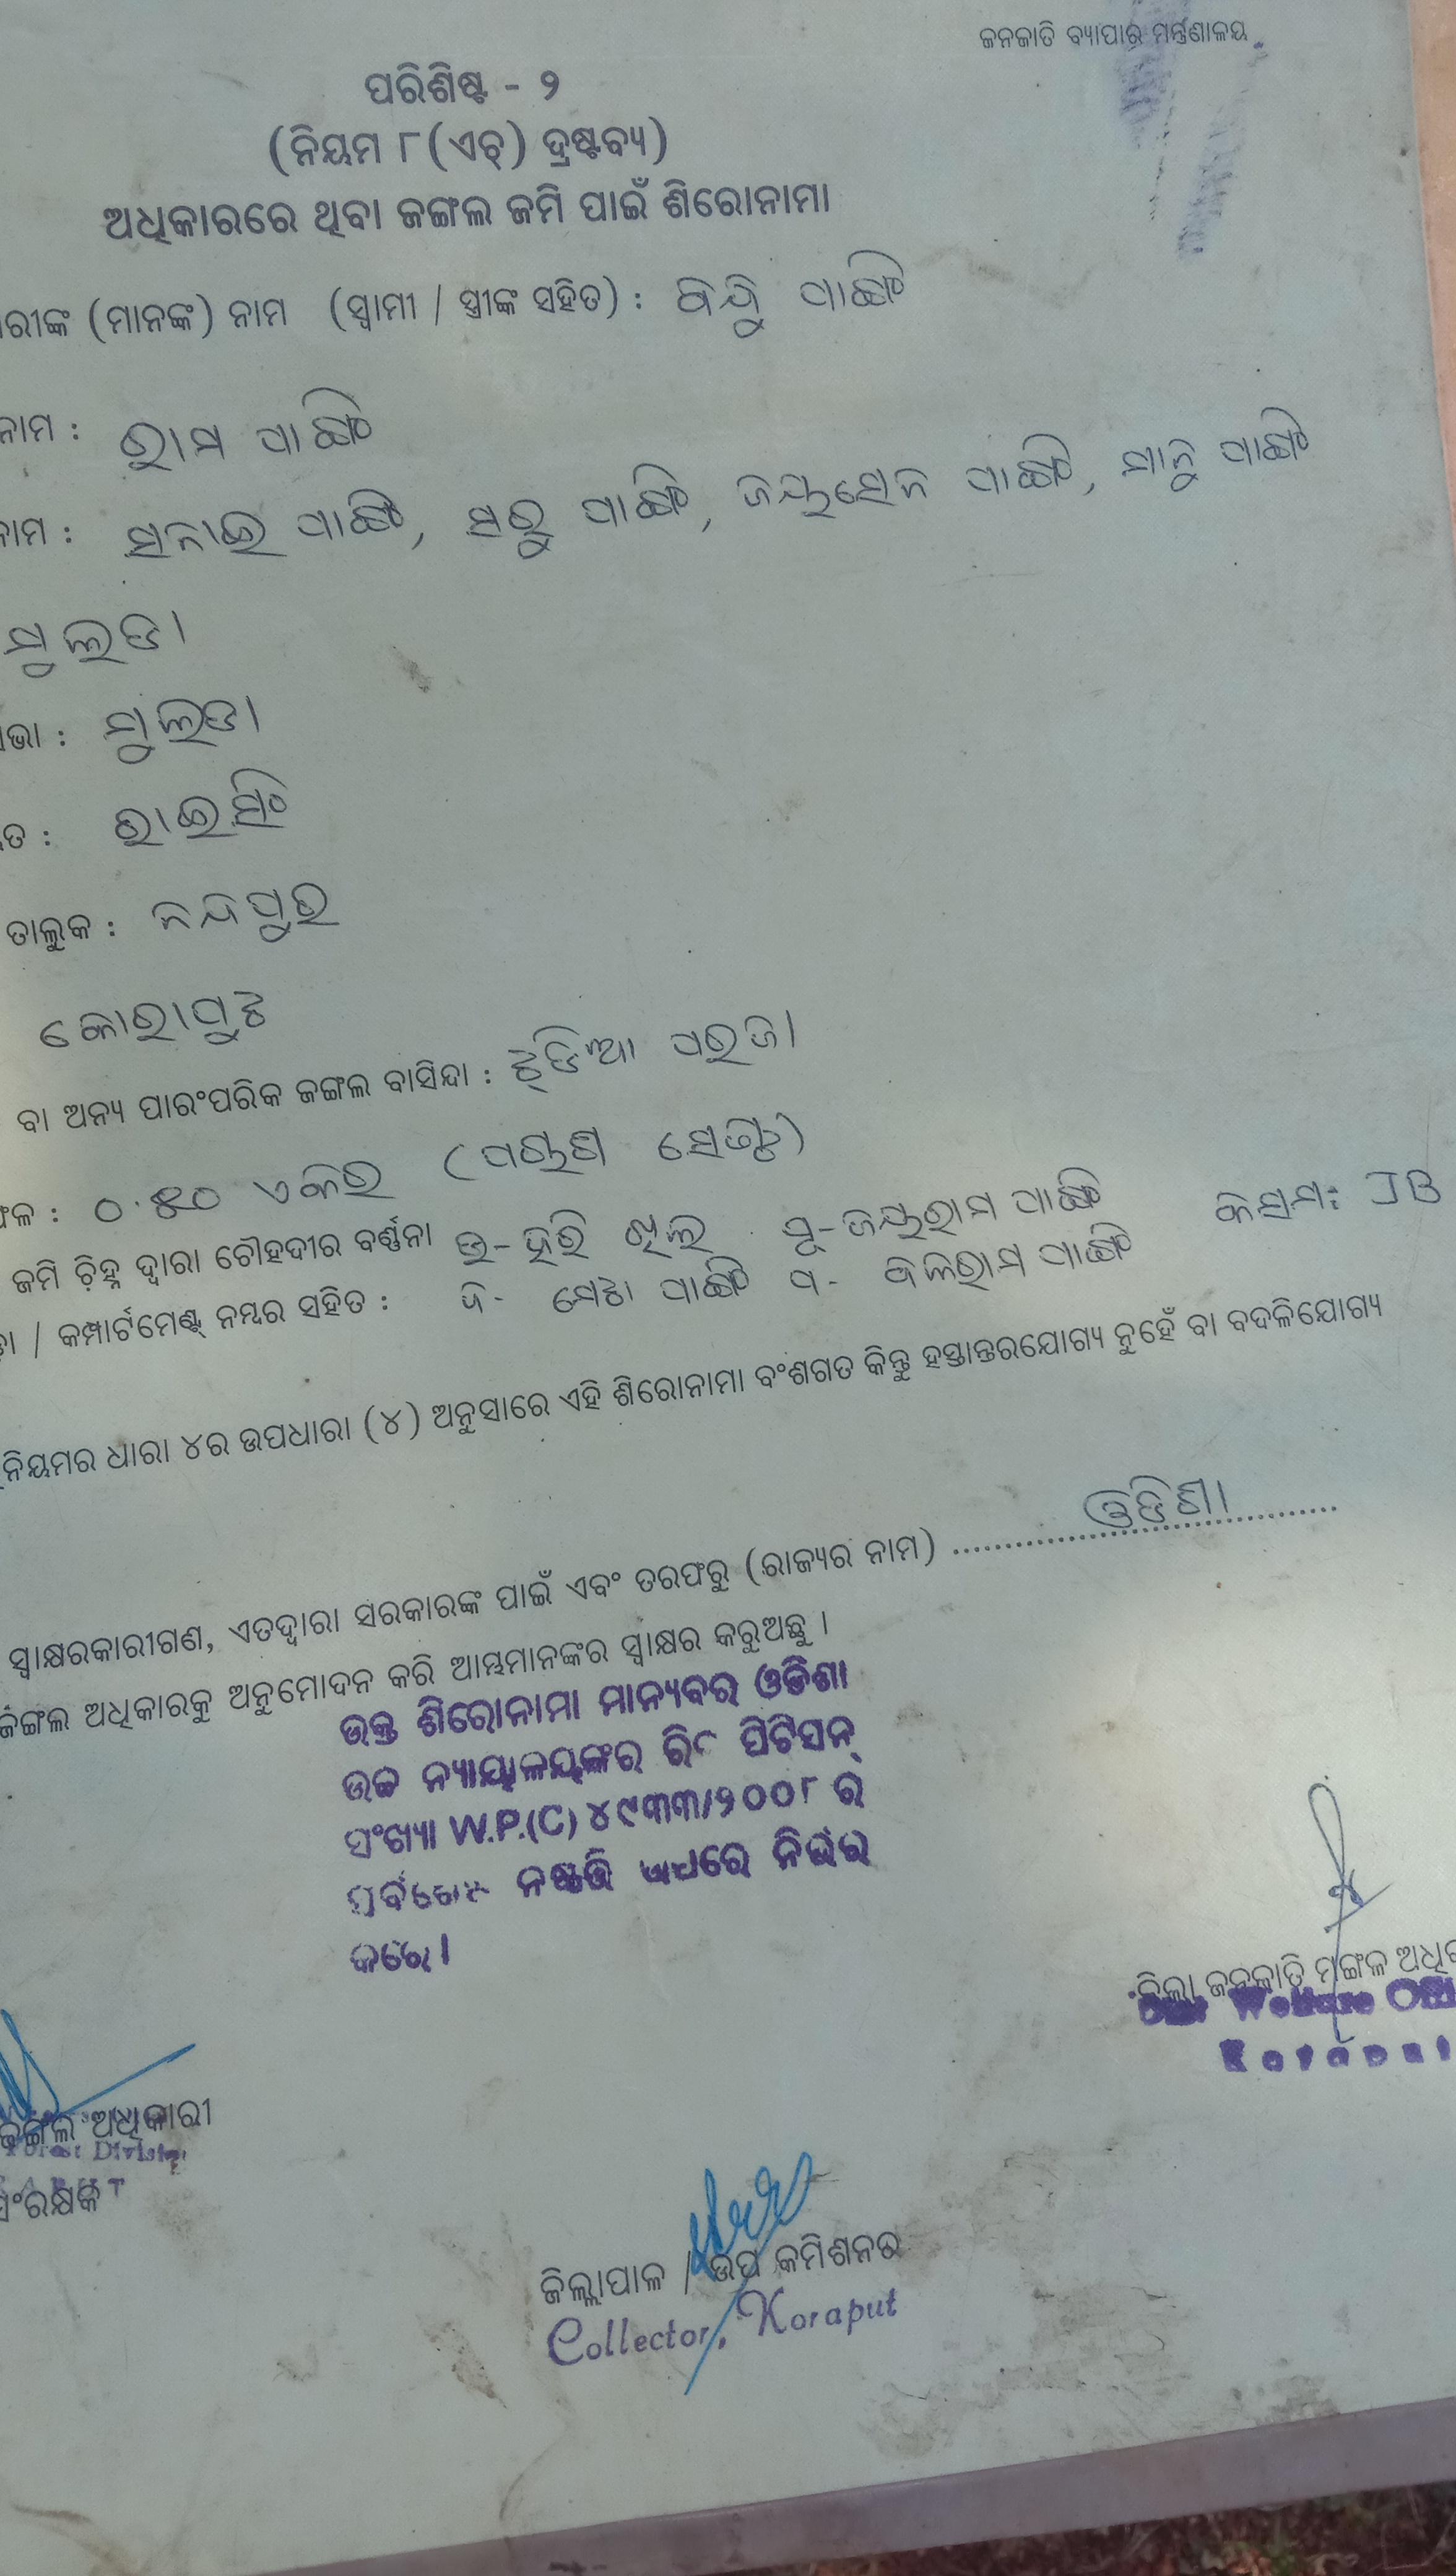 ଜନଜାତି ବ୍ୟାପାର ମନ୍ତ୍ରଣାଳୟ
ପରିଶିଷ୍ଟ - ୨
(ନିୟମ ୮(ଏଚ୍) ଦ୍ରଷ୍ଟବ୍ୟ)
ଅଧିକାରରେ ଥିବା ଜଙ୍ଗଲ ଜମି ପାଇଁ ଶିରୋନାମା
ରୀଙ୍କ (ମାନଙ୍କ) ନାମ (ସ୍ୱାମୀ / ସ୍ତ୍ରୀଙ୍କ ସହିତ) :
ନାମ : ରାମ ପାଙ୍ଗି
ନାମ : ସନାଇ ପାଙ୍ଗି, ସରୁ ପାଙ୍ଗି, ଜୟସେନ ପାଙ୍ଗି, ସାନୁ ପାଙ୍ଗି
ମୁଲଡା
ଭା : ମୁଲଡା
ତ : ରାଇସିଂ
ତାଲୁକ : ନନ୍ଦପୁର
କୋରାପୁଟ
ବା ଅନ୍ୟ ପାରଂପରିକ ଜଙ୍ଗଲ ବାସିନ୍ଦା : ପରଜା
ଫଳ : ୦.୫୦ ଏକର (ପଚାଶ ସେଣ୍ଟ)
ଜମି ଚିହ୍ନ ଦ୍ୱାରା ଚୌହଦୀର ବର୍ଣ୍ଣନା ଉ-ହରି ଖିଲ ପୂ-ଜୟରାମ ପାଙ୍ଗି କିସମ: JB
/ କମ୍ପାର୍ଟମେଣ୍ଟ୍ ନମ୍ବର ସହିତ : ଦ- ପାଙ୍ଗି ପ- ବଳରାମ ପାଙ୍ଗି
ନିୟମର ଧାରା ୪ର ଉପଧାରା (୪) ଅନୁସାରେ ଏହି ଶିରୋନାମା ବଂଶଗତ କିନ୍ତୁ ହସ୍ତାନ୍ତରଯୋଗ୍ୟ ନୁହେଁ ବା ବଦଳିଯୋଗ୍ୟ
ସ୍ୱାକ୍ଷରକାରୀଗଣ, ଏତଦ୍ୱାରା ସରକାରଙ୍କ ପାଇଁ ଏବଂ ତରଫରୁ (ରାଜ୍ୟର ନାମ) ............ ଓଡିଶା ............
ଜଙ୍ଗଲ ଅଧିକାରକୁ ଅନୁମୋଦନ କରି ଆମ୍ଭମାନଙ୍କର ସ୍ୱାକ୍ଷର କରୁଅଛୁ ।
ଉକ୍ତ ଶିରୋନାମା ମାନ୍ୟବର ଓଡିଶା
ଉଚ୍ଚ ନ୍ୟାୟାଳୟଙ୍କର ରିଟ ପିଟିସନ୍
ସଂଖ୍ୟା W.P.(C) ୪୯୩୩/୨୦୦୮ ର
ନିର୍ଭର
କରେ।
ଜିଲ୍ଲା ଜନଜାତି ମଙ୍ଗଳ
Welfare
Koraput
ଜଙ୍ଗଲ ଅଧିକାରୀ
Forest Division
ସଂରକ୍ଷକ
ଜିଲ୍ଲାପାଳ / ଉପ କମିଶନର
Collector, Koraput